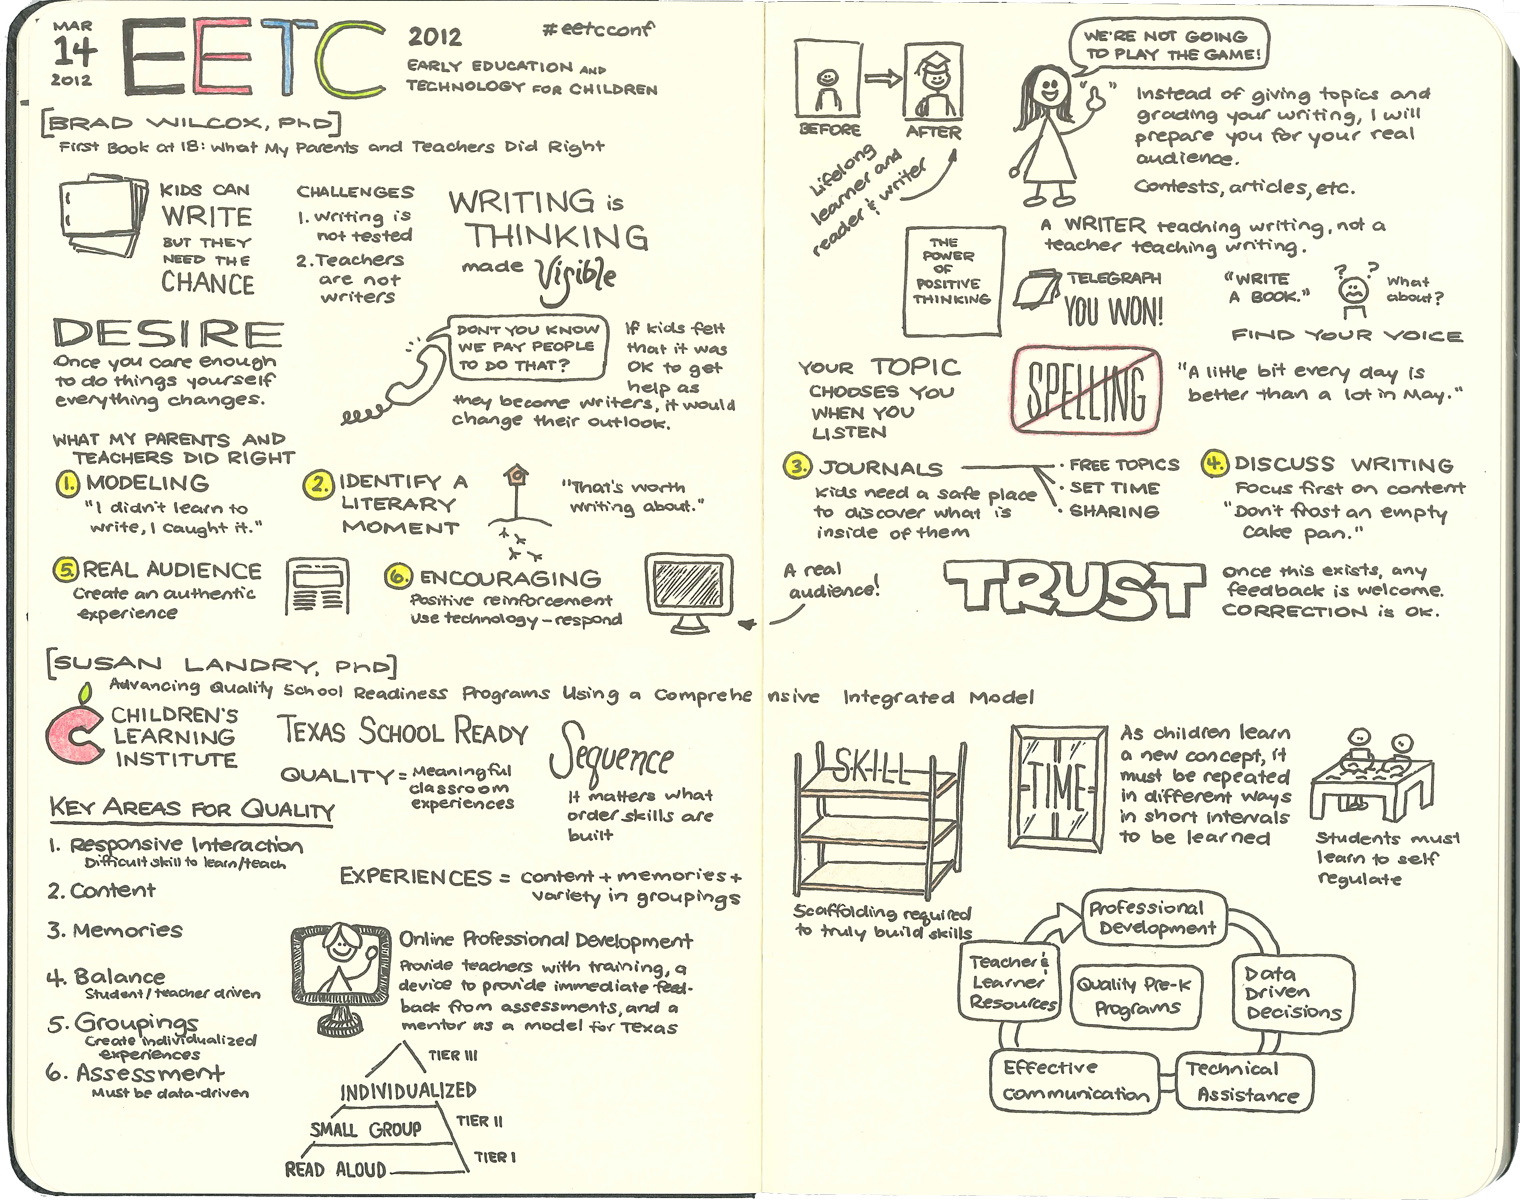 MAR
14
2012
EETC
2012
#eetcconf
EARLY EDUCATION AND
TECHNOLOGY FOR CHILDREN
[BRAD WILCOX, PhD]
First Book at 18: What My Parents and Teachers Did Right
KIDS CAN
WRITE
BUT THEY
NEED THE
CHANCE
CHALLENGES
1. Writing is
not tested
2. Teachers
are not
writers
WRITING is
THINKING
made Visible
DESIRE
Once you care enough
to do things yourself
everything changes.
DON'T YOU KNOW
WE PAY PEOPLE
TO DO THAT?
If kids felt
that it was
OK to get
help as
they become writers, it would
change their outlook.
WHAT MY PARENTS AND
TEACHERS DID RIGHT
1. MODELING
"I didn't learn to
write, I caught it."
2. IDENTIFY A
LITERARY
MOMENT
"That's worth
writing about."
5. REAL AUDIENCE
Create an authentic
experience
6. ENCOURAGING
Positive reinforcement
Use technology - respond
A real
audience!
BEFORE
AFTER
Lifelong
learner and
reader & writer
WE'RE NOT GOING
TO PLAY THE GAME!
" "
Instead of giving topics and
grading your writing, I will
prepare you for your real
audience.
Contests, articles, etc.
A WRITER teaching writing, not a
teacher teaching writing.
THE
POWER
OF
POSITIVE
THINKING
TELEGRAPH
YOU WON!
"WRITE
A BOOK."
? ?
What
about?
FIND YOUR VOICE
YOUR TOPIC
CHOOSES YOU
WHEN YOU
LISTEN
SPELLING
"A little bit every day is
better than a lot in May."
3. JOURNALS
Kids need a safe place
to discover what is
inside of them
· FREE TOPICS
· SET TIME
· SHARING
4. DISCUSS WRITING
Focus first on content
"Don't frost an empty
cake pan."
TRUST
Once this exists, any
feedback is welcome.
CORRECTION is OK.
[SUSAN LANDRY, PhD]
Advancing Quality School Readiness Programs Using a Comprehensive Integrated Model
C
CHILDREN'S
LEARNING
INSTITUTE
TEXAS SCHOOL READY
QUALITY = Meaningful
classroom
experiences
Sequence
It matters what
order skills are
built
KEY AREAS FOR QUALITY
1. Responsive Interaction
Difficult skill to learn/teach
2. Content
3. Memories
4. Balance
Student/teacher driven
5. Groupings
Create individualized
experiences
6. Assessment
Must be data-driven
EXPERIENCES = content + memories +
variety in groupings
Online Professional Development
Provide teachers with training, a
device to provide immediate feed-
back from assessments, and a
mentor as a model for Texas
TIER III
INDIVIDUALIZED
SMALL GROUP
TIER II
READ ALOUD
TIER I
SKILL
Scaffolding required
to truly build skills
TIME
As children learn
a new concept, it
must be repeated
in different ways
in short intervals
to be learned
Students must
learn to self
regulate
Professional
Development
Teacher &
Learner
Resources
Quality Pre-K
Programs
Data
Driven
Decisions
Effective
Communication
Technical
Assistance